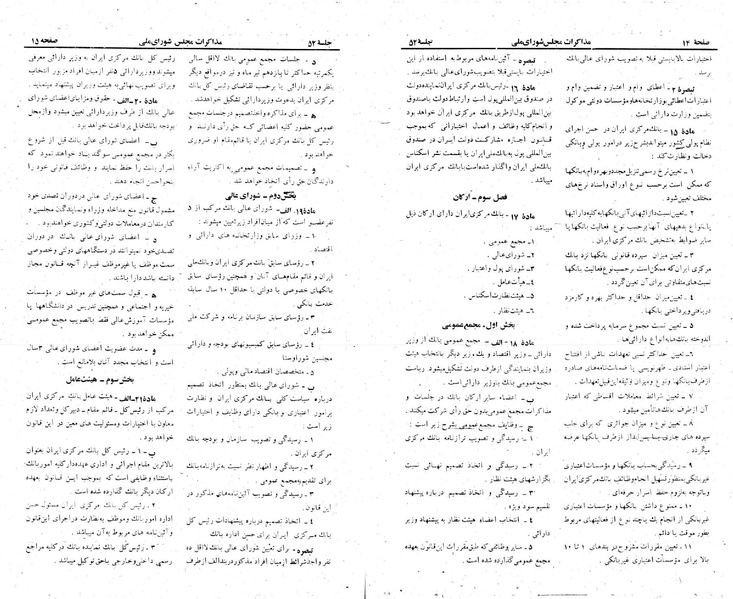 صفحهٔ ۱۴ مذاکرات مجلس شورای ملی جلسهٔ ۵۲
اختیارات بایستی قبلا به تصویب شورای عالی بانک
برسد.
تبصره ۲ - اعطای وام و اعتبار و تضمین وام و
اعتبارات اعطائی بوزارتخانه‌ها و مؤسسات دولتی موکول
بتضمین وزارت دارائی است.
ماده ۱۵ - بانک مرکزی ایران در حسن اجرای
نظام پولی کشور میتواند بشرح زیر در امور پولی و بانکی
دخالت و نظارت کند:
۱ - تعیین نرخ رسمی تنزیل مجدد و بهره وام به بانکها
که ممکن است برحسب نوع اوراق و اسناد نرخهای
مختلف تعیین شود.
۲ - تعیین نسبت دارائیهای آنی بانکها به کلیه دارائیها
یا بانواع بدهیهای آنها برحسب نوع فعالیت بانکها یا
سایر ضوابط به تشخیص بانک مرکزی ایران.
۳ - تعیین میزان سپرده قانونی بانکها نزد بانک
مرکزی ایران که ممکن است برحسب نوع فعالیت بانکها
نسبت‌های متفاوتی برای آن تعیین گردد.
۴ - تعیین میزان حداقل و حداکثر بهره و کارمزد
دریافتی و پرداختی بانکها.
۵ - تعیین نسبت مجموع سرمایه پرداخت شده و
اندوخته بانکها به انواع دارائی‌ها.
۶ - تعیین حداکثر نسبی تعهدات ناشی از افتتاح
اعتبار اسنادی - ظهرنویسی یا ضمانت‌نامه‌های صادره
از طرف بانکها و نوع و میزان وثیقه این قبیل تعهدات.
۷ - تعیین شرائط معاملات اقساطی که اعتبار
آن از طرف بانکها تأمین میشود.
۸ - تعیین نوع و میزان جوائزی که برای جلب
سپرده های جاری یا پس‌انداز از طرف بانکها عرضه
میگردد.
۹ - رسیدگی بحساب بانکها و مؤسسات اعتباری
غیر بانکی بمنظور تسهیل انجام وظائف بانک مرکزی ایران
و باتوجه به لزوم حفظ اسرار حرفه‌ای.
۱۰ - ممنوع داشتن بانکها و مؤسسات اعتباری
غیربانکی از انجام یک یا چند نوع از فعالیتهای مربوط
بطور موقت یا دائم.
۱۱ - تعیین مقررات مشروح در بندهای ۱ تا ۱۰
بالا برای مؤسسات اعتباری غیر بانکی.
تبصره - آئین‌نامه‌های مربوط به استفاده از این
اختیارات بایستی قبلا به تصویب شورای عالی بانک برسد.
ماده ۱۶ - بانک مرکزی ایران نماینده دولت
در صندوق بین‌المللی پول است و ارتباط دولت با صندوق
بین‌المللی پول از طریق بانک مرکزی ایران خواهد بود
و انجام کلیه وظائف و اعمال اختیاراتی که بموجب
قانون اجازه مشارکت دولت ایران در صندوق
بین‌المللی پول به بانک ملی ایران یا بقسمت نشر اسکناس
بانک ملی ایران واگذار شده است با بانک مرکزی ایران
میباشد.
فصل سوم - ارکان
ماده ۱۷ - بانک مرکزی ایران دارای ارکان ذیل
میباشد:
۱ - مجمع عمومی.
۲ - شورای عالی.
۳ - شورای پول و اعتبار.
۴ - هیأت عامل.
۵ - هیئت نظارت اسکناس.
۶ - هیئت نظار.
بخش اول - مجمع عمومی
ماده ۱۸ - الف - مجمع عمومی بانک مرکب از وزیر
دارائی - وزیر اقتصاد و یک وزیر دیگر بانتخاب هیئت
وزیران بنمایندگی از طرف دولت تشکیل میشود ریاست
مجمع عمومی بانک با وزیر دارائی است.
ب - اعضاء سایر ارکان بانک در جلسات و
مذاکرات مجمع عمومی بدون حق رأی شرکت میکنند.
ج - وظایف مجمع عمومی بشرح زیر است:
۱ - رسیدگی و تصویب ترازنامه بانک مرکزی
ایران.
۲ - رسیدگی و اتخاذ تصمیم نهائی نسبت
بگزارشهای هیئت نظار.
۳ - رسیدگی و اتخاذ تصمیم درباره پیشنهاد
تقسیم سود ویژه.
۴ - انتخاب اعضاء هیئت نظار به پیشنهاد وزیر
دارائی.
۵ - سایر وظائفی که طبق مقررات این قانون بعهده
مجمع عمومی گذارده شده است.
جلسهٔ ۵۲ مذاکرات مجلس شورای ملی صفحه ۱۵
د - جلسات مجمع عمومی بانک لااقل سالی
یکمرتبه حداکثر تا پانزدهم تیر ماه و نیز در مواقع دیگر
بنظر وزیر دارائی یا برحسب تقاضای رئیس کل بانک
مرکزی ایران بدعوت وزیر دارائی تشکیل خواهد شد.
ه - برای مذاکره و اخذ تصمیم در جلسات مجمع
عمومی حضور کلیه اعضائی که حق رأی دارند و
رئیس کل بانک مرکزی ایران یا قائم‌مقام او ضروری
خواهد بود.
و - تصمیمات مجمع عمومی به اکثریت آراء
دارندگان حق رأی اتخاذ خواهد شد.
بخش دوم - شورای عالی
ماده ۱۹ - الف - شورای عالی بانک مرکب از ۵
نفر عضو است که از میان افراد زیر تعیین میشوند:
۱ - وزرای سابق وزارتخانه های دارائی و
اقتصاد.
۲ - رؤسای سابق بانک مرکزی ایران و بانک ملی
ایران و قائم مقام‌های آنان و همچنین رؤسای سابق
بانکهای خصوصی یا دولتی با حداقل ۱۰ سال سابقه
خدمت بانکی.
۳ - رؤسای سابق سازمان برنامه و شرکت ملی
نفت ایران.
۴ - رؤسای سابق کمیسیونهای بودجه و دارائی
مجلسین شورا و سنا.
۵ - متخصصان اقتصاد مالی و پولی.
ب - شورای عالی بانک بمنظور اتخاذ تصمیم
درباره سیاست کلی بانک مرکزی ایران و نظارت
برامور اعتباری و بانکی دارای وظایف و اختیارات
زیر است:
۱ - رسیدگی و تصویب سازمان و بودجه بانک
مرکزی ایران.
۲ - رسیدگی و اظهار نظر نسبت به ترازنامه بانک
برای تقدیم به مجمع عمومی.
۳ - رسیدگی و تصویب آئین‌نامه‌های مذکور در
این قانون.
۴ - اتخاذ تصمیم درباره پیشنهادات رئیس کل
بانک مرکزی ایران برای حسن اداره بانک.
تبصره - برای تعیین شورای عالی بانک لااقل ده
نفر واجد شرائط از میان افراد مذکور در بند الف از طرف
رئیس کل بانک مرکزی ایران به وزیر دارائی معرفی
میشوند و وزیر دارائی ۵ نفر از میان افراد مزبور انتخاب
و برای تصویب نهائی به هیئت وزیران پیشنهاد مینماید.
ماده ۲۰ - الف - حقوق و مزایای اعضای شورای
عالی بانک از طرف وزیر دارائی تعیین میشود و از محل
بودجه بانک قابل پرداخت خواهد بود.
ب - اعضای شورای عالی بانک قبل از شروع
بکار در مجمع عمومی سوگند یاد خواهند نمود که
اسرار بانک را حفظ نمایند و وظائف قانونی خود را
بنحو احسن انجام دهند.
ج - اعضای شورای عالی در دوران تصدی خود
مشمول قانون منع مداخله وزراء و نمایندگان مجلسین و
کارمندان در معاملات دولتی و کشوری خواهند بود.
د - اعضای شورای عالی بانک در دوران
تصدی خود نمیتوانند در دستگاههای دولتی و خصوصی
سمت موظف یا غیر موظف غیر از آنچه قانون مجاز
دانسته باشد دارا باشند.
ه - قبول سمت‌های غیر موظف در مؤسسات
خیریه و اجتماعی و همچنین تدریس در دانشگاهها یا
مؤسسات آموزش عالی فقط با تصویب مجمع عمومی
ممکن خواهد بود.
و - مدت عضویت اعضای شورای عالی ۳ سال
است و انتخاب مجدد آنان بلامانع است.
بخش سوم - هیئت عامل
ماده ۲۱ - الف - هیئت عامل بانک مرکزی ایران
مرکب از رئیس کل - قائم مقام - دبیر کل و تعداد لازم
معاون با اختیارات و مسئولیت های معین در این قانون
خواهد بود.
ب - ۱ - رئیس کل بانک مرکزی ایران بعنوان
بالاترین مقام اجرائی و اداری عهده‌دار کلیه امور بانک
باستثناء وظایفی است که بموجب این قانون بعهده
ارکان دیگر بانک گذارده شده است.
۲ - رئیس کل بانک مرکزی ایران مسئول حسن
اداره امور بانک و موظف به نظارت در اجرای این قانون
و آئین‌نامه های مربوط به آن میباشد.
۳ - رئیس کل بانک نماینده بانک در کلیه مراجع
رسمی داخلی و خارجی با حق توکیل میباشد.